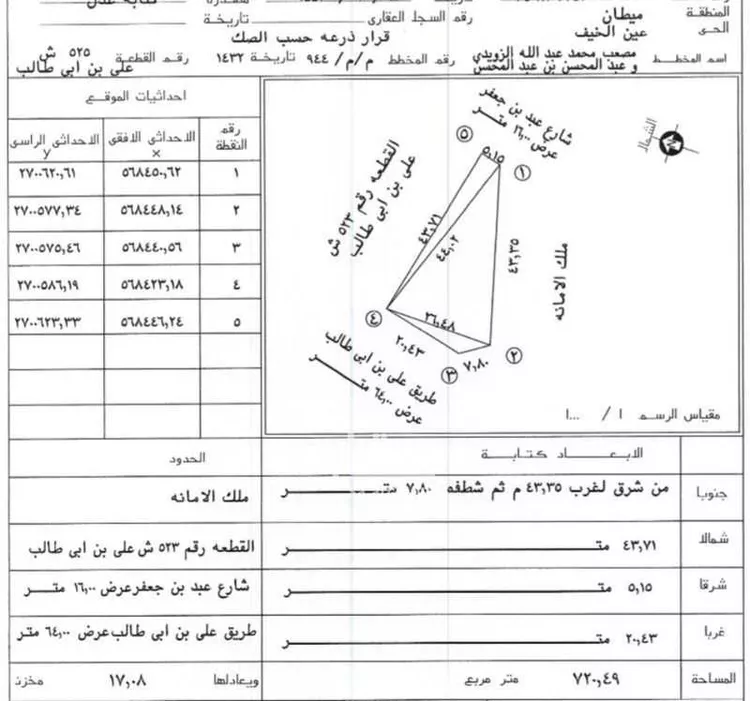 المنطقة ميطان رقم السجل العقارى تاريخة كتابة عدل
الحى عين الخيف
قرار ذرعه حسب الصك
اسم المخطط مصعب محمد عبد الله الزويدي و عبد المحسن بن عبد المحسن رقم المخطط م/م/٩٤٤ تاريخة ١٤٣٢ رقم القطعة ٥٢٥ ش على بن ابى طالب
احداثيات الموقع
رقم النقطة الاحداثى الافقى x الاحداثى الراسى y
١ ٥٦٨٤٥٠,٦٢ ٢٧٠٠٦٢٠,٦١
٢ ٥٦٨٤٤٨,١٤ ٢٧٠٠٥٧٧,٣٤
٣ ٥٦٨٤٤٠,٥٦ ٢٧٠٠٥٧٥,٤٦
٤ ٥٦٨٤٢٣,١٨ ٢٧٠٠٥٨٦,١٩
٥ ٥٦٨٤٤٦,٢٤ ٢٧٠٠٦٢٣,٣٣
شارع عبد بن جعفر
عرض ١٦,٠٠ متر
الشمال
٥
٥,١٥
١
القطعه رقم ٥٢٣ ش
على بن ابى طالب
٤٣,٧١
٤٤,٠٢
٤٣,٣٥
ملك الامانه
٤
٢٦,٤٨
٢٠,٤٣
٢
٣
٧,٨٠
طريق على بن ابى طالب
عرض ٦٤,٠٠ متر
مقياس الرسم ١ / ...١
الابعاد كتابة الحدود
جنوبا من شرق لغرب ٤٣,٣٥ م ثم شطفه ٧,٨٠ متر ملك الامانه
شمالا ٤٣,٧١ متر القطعه رقم ٥٢٣ ش على بن ابى طالب
شرقا ٥,١٥ متر شارع عبد بن جعفر عرض ١٦,٠٠ متر
غربا ٢٠,٤٣ متر طريق على بن ابى طالب عرض ٦٤,٠٠ متر
المساحة ٧٢٠,٤٩ متر مربع ويعادلها ١٧,٠٨ مخزن